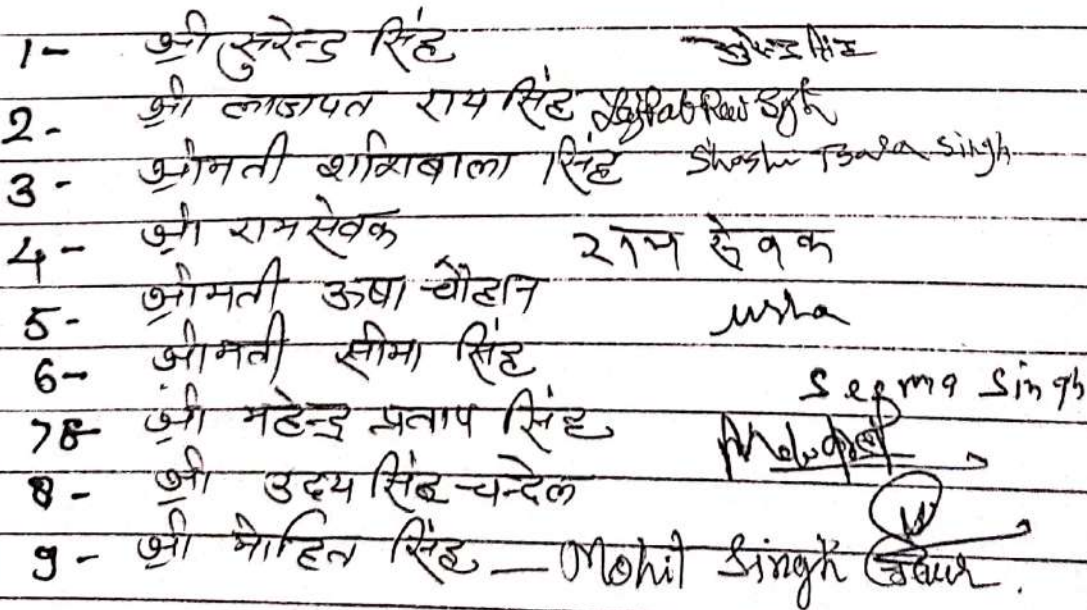 1- श्री सुरेन्द्र सिंह सुरेन्द्र सिंह
2- श्री लाजपत राय सिंह Lajpat Rai Sgh
3- श्रीमती शशिबाला सिंह Shashi Bala Singh
4- श्री रामसेवक राम सेवक
5- श्रीमती ऊषा चौहान usha
6- श्रीमती सीमा सिंह Seema Singh
7- श्री महेन्द्र प्रताप सिंह
8- श्री उदय सिंह चन्देल
9- श्री मोहित सिंह — Mohit Singh Gaur.